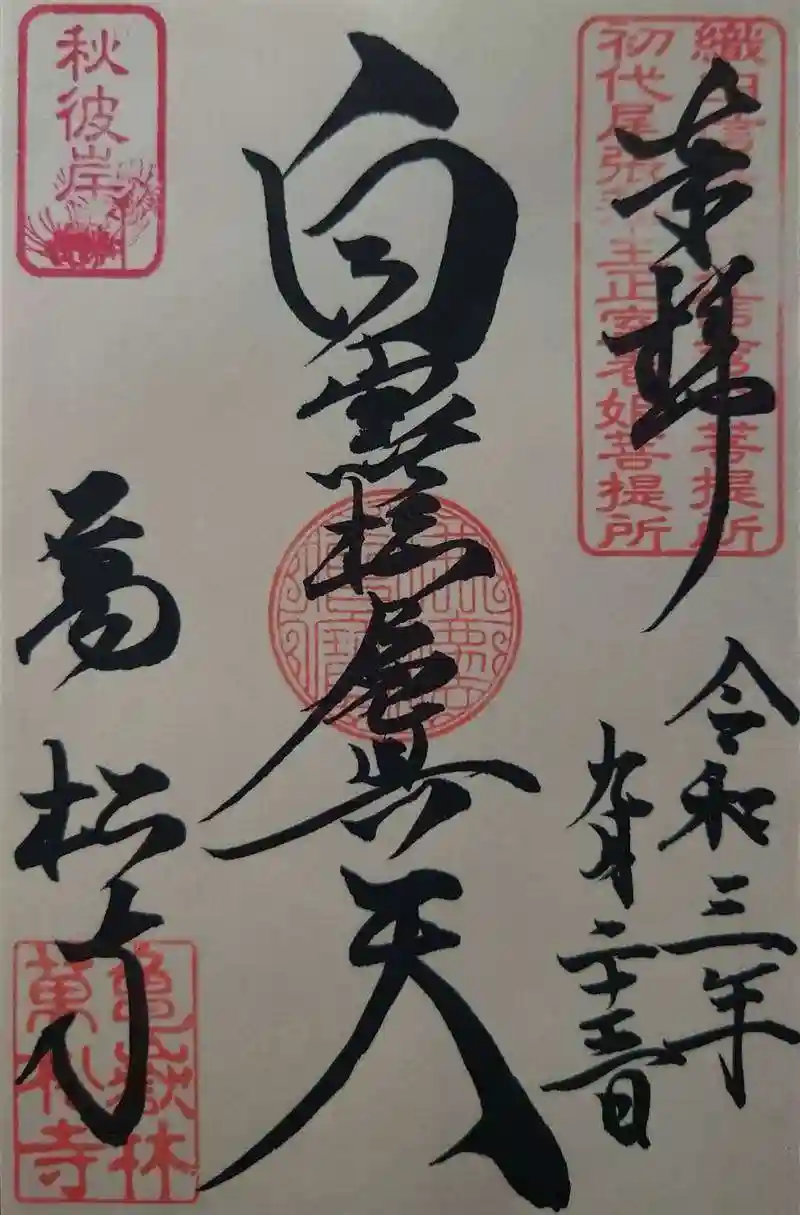 織田
信秀
菩提所
初代尾張藩主正室春姫菩提所
奉拝
令和三年
九月二十三日
白雪吒枳尼真天
秋彼岸
萬松寺
亀嶽林
萬松寺